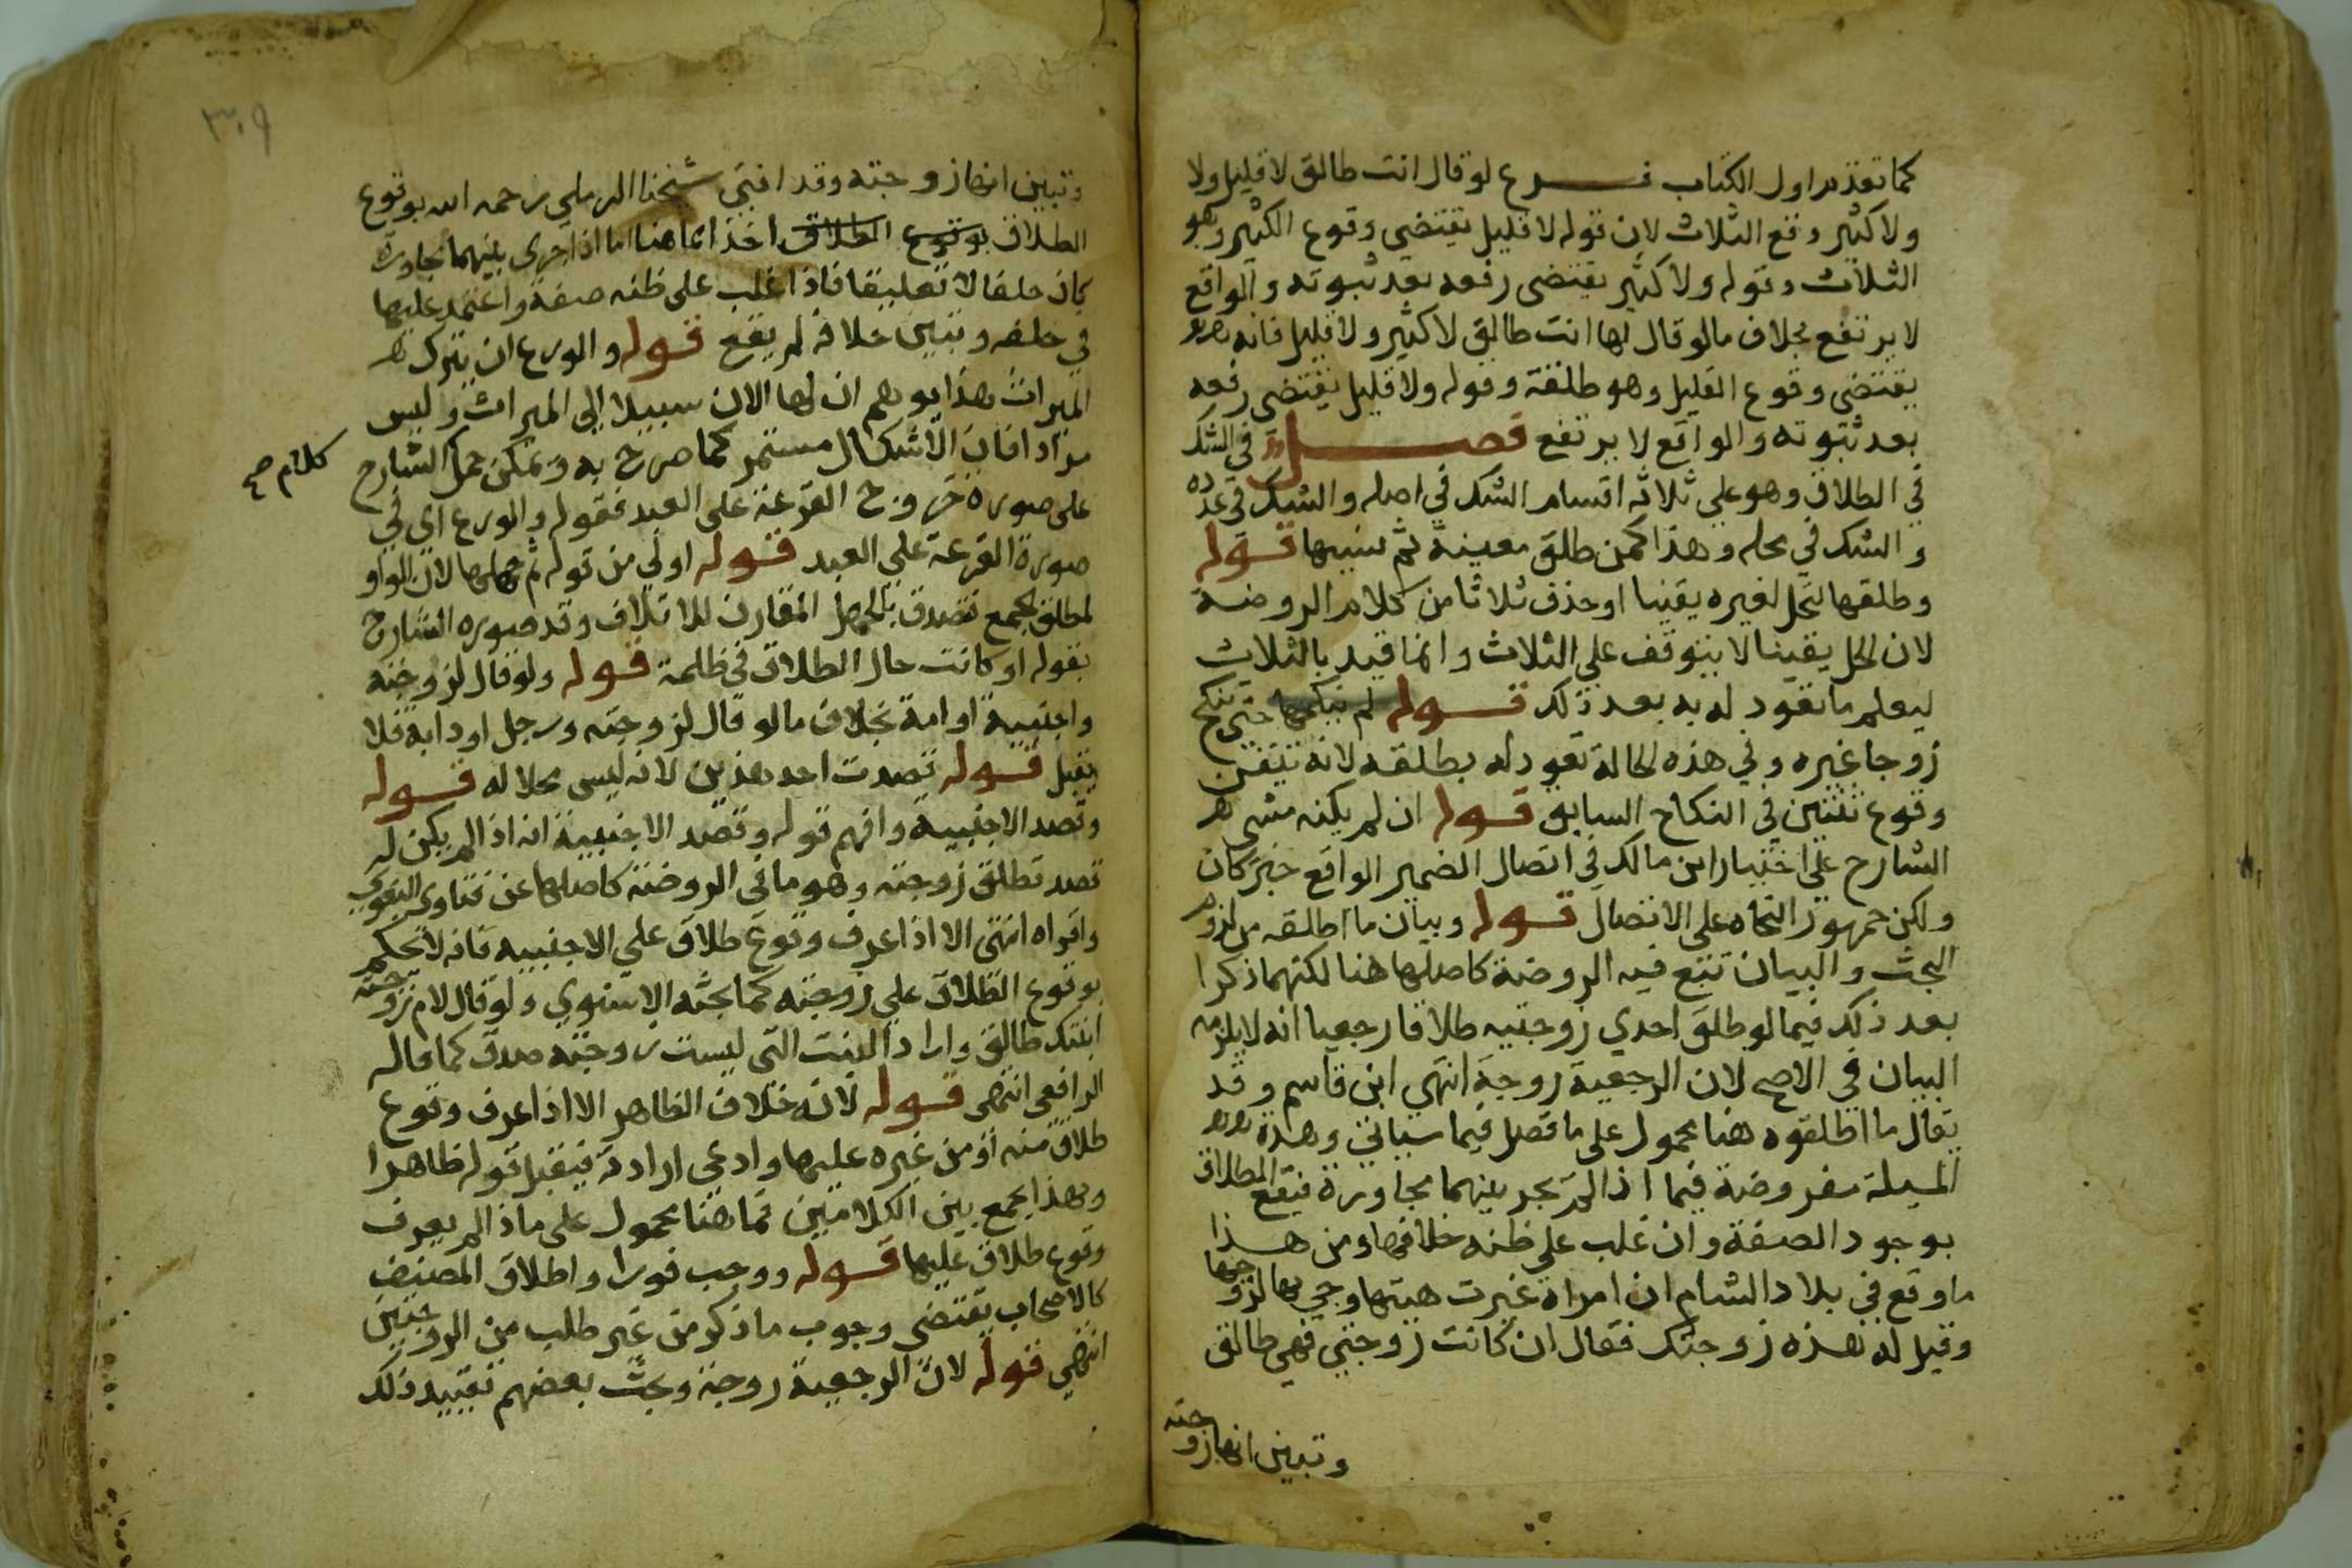 كما تقدم اول الكتاب فرع لو قال انت طالق لا قليل ولا
ولا كثير وقع الثلاث لان قوله لا قليل يقتضي وقوع الكثير وهو
الثلاث وقوله ولا كثير يقتضى رفعه بعد ثبوته والواقع
لا يرتفع بخلاف مالو قال لها انت طالق لا كثير ولا قليل فانه
يقتضى وقوع القليل وهو طلقة وقوله ولا قليل يقتضى رفعه
بعد ثبوته والواقع لا يرتفع فصل في الشك
في الطلاق وهو على ثلاثه اقسام الشك في اصله والشك في عدده
والشك في محله وهذا كمن طلق معينة ثم نسيها قوله
وطلقها لتحل لغيره يقينا او حذف ثلاثا من كلام الروضة
لان الحل يقينا لا يتوقف على الثلاث وانما قيد بالثلاث
ليعلم ما تعود له به بعد ذلك قوله لم ينكحها حتى تنكح
زوجا غيره وفي هذه الحالة تعود له بطلقه لانه تيقن
وقوع ثنتين في النكاح السابق قوله ان لم يكنه مشى
الشارح على اختيار ابن مالك في اتصال الضمير الواقع خبر كان
ولكن جمهور النحاه على الانفصال قوله وبيان ما اطلقه من لزوم
البحث والبيان تتبع فيه الروضة كاصلها هنا لكنهما ذكرا
بعد ذلك فيما لو طلق احدي زوجتيه طلاقا رجعيا انه لا يلزمه
البيان في الاصح لان الرجعية زوجة انتهى ابن قاسم وقد
يقال ما اطلقوه هنا محمول على ما فصل فيما سياتي وهذه
المسيلة مفروضة فيما اذا لم يجر بينهما مجاورة فيقع الطلاق
بوجود الصفة وان غلب على ظنه خلافها ومن هذا
ما وقع في بلاد الشام ان امراة غيرت هيتها وجي بها لزوجها
وقيل له هذه زوجتك فقال ان كانت زوجتي فهي طالق
وتبين انها زوجته
٣٠٩
وتبين انها زوجته وقد افتى شيخنا الرملي رحمه الله بوقوع
الطلاق بوقوع الطلاق اخذا مما هنا اما اذا جرى بينهما مجاورة
كان حلفا لا تعليقا فاذا غلب على ظنه صفة واعتمد عليها
في حلفه وتبين خلافه لم يقع قوله والورع ان يترك
الميراث هذا يوهم ان لها الان سبيلا الى الميراث وليس
مرادا فان الاشكال مستمر كما صرح به ويمكن حمل الشارح
كلام صح
على صورة خروج القرعة على العبد فقوله والورع اي في
صورة القرعة على العبد قوله اولي من قوله ثم جهلها لان الواو
لمطلق الجمع تصدق بالجهل المقارن للاتلاف وقد صوره الشارح
بقوله او كانت حال الطلاق في ظلمة قوله ولو قال لزوجته
واجنبية او امة بخلاف مالو قال لزوجته ورجل او دابة فلا
يقبل قوله قصدت احد هذين لانه ليس محلا له قوله
وقصد الاجنبية وافهم قوله وقصد الاجنبية انه اذا لم يكن له
قصد تطلق زوجته وهو ما في الروضة كاصلها عن فتاوي البغوي
واقراه انتهى الا اذا عرف وقوع طلاق على الاجنبيه فانه لا يحكم
بوقوع الطلاق على زوجته كما بحثه الاسنوي ولو قال لام زوجته
ابنتك طالق واراد البنت التي ليست زوجته صدق كما قاله
الرافعي انتهى قوله لانه خلاف الظاهر الا اذا عرف وقوع
طلاق منه او من غيره عليها وادعى ارادته فيقبل قوله ظاهرا
وبهذا يجمع بين الكلامين فما هنا محمول على ما اذا لم يعرف
وقوع طلاق عليها قوله ووجب فورا واطلاق المصنف
كالاصحاب يقتضي وجوب ما ذكر من غير طلب من الزوجتين
انتهى قوله لان الرجعية زوجة وبحث بعضهم تقييد ذلك